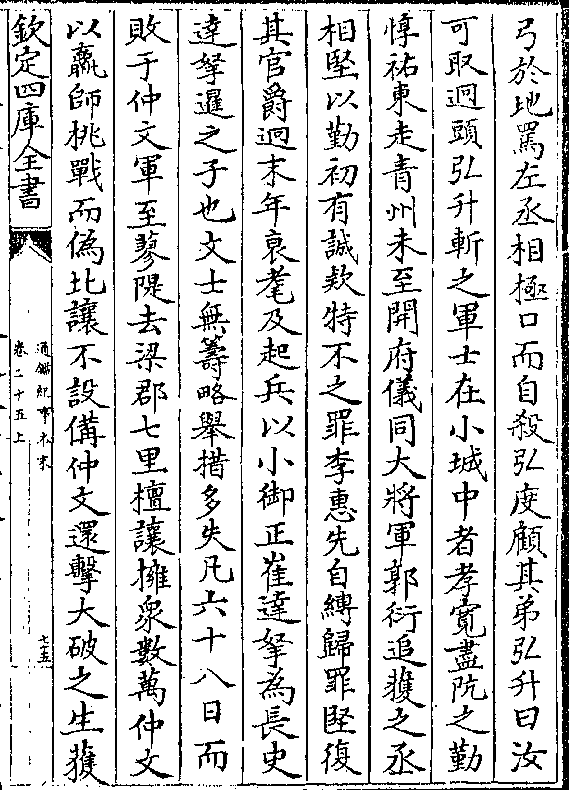 弓於地罵左丞相極口而自殺弘度顧其弟弘升曰汝
可取迥頭弘升斬之軍士在小城中者孝寛盡阬之勤
惇祐東走青州未至開府儀同大將軍郭衍追獲之丞
相堅以勤初有誠款特不之罪李惠先自縛歸罪堅復
其官爵迥末年衰耄及起兵以小御正崔達拏為長史
達拏暹之子也文士無籌略舉措多失凡六十八日而
敗于仲文軍至蓼隄去梁郡七里檀讓擁衆數萬仲文
以羸師挑戰而偽北讓不設備仲文還擊大破之生獲
欽定四庫全書
通鑑紀事本末
卷二十五上
七五